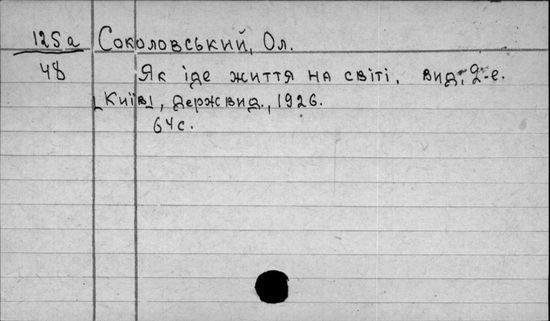 125а Соколовський, Ол.
48 Як іде життя на світі. вид. 2-е.
[Київ], Держвид., 1926.
64 с.